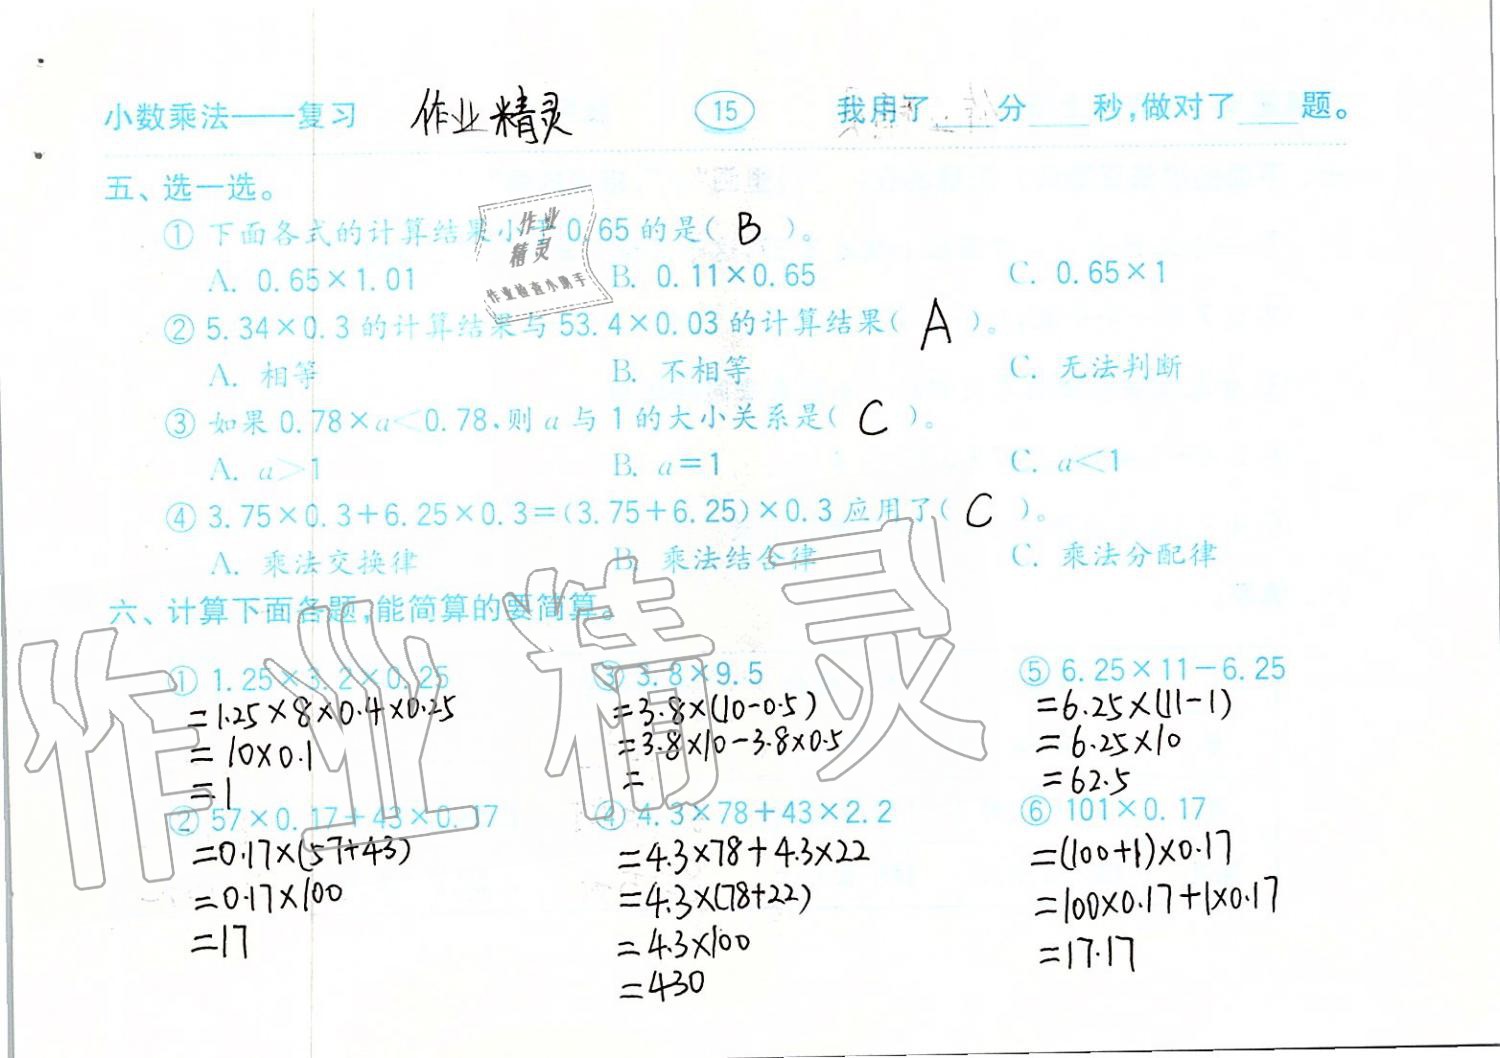 小数乘法——复习 作业精灵 15 我用了____分____秒,做对了____题。
五、选一选。
① 下面各式的计算结果小于0.65的是( B )。
A. 0.65×1.01 B. 0.11×0.65 C. 0.65×1
② 5.34×0.3的计算结果与53.4×0.03的计算结果( A )。
A. 相等 B. 不相等 C. 无法判断
③ 如果0.78×a<0.78,则a与1的大小关系是( C )。
A. a>1 B. a=1 C. a<1
④ 3.75×0.3+6.25×0.3=(3.75+6.25)×0.3应用了( C )。
A. 乘法交换律 B. 乘法结合律 C. 乘法分配律
六、计算下面各题,能简算的要简算。
① 1.25×3.2×0.25 ③ 3.8×9.5 ⑤ 6.25×11-6.25
=1.25×8×0.4×0.25 =3.8×(10-0.5) =6.25×(11-1)
=10×0.1 =3.8×10-3.8×0.5 =6.25×10
=1 = =62.5
② 57×0.17+43×0.17 ④ 4.3×78+43×2.2 ⑥ 101×0.17
=0.17×(57+43) =4.3×78+4.3×22 =(100+1)×0.17
=0.17×100 =4.3×(78+22) =100×0.17+1×0.17
=17 =4.3×100 =17.17
=430
作业
精灵
作业检查小助手
作业精灵